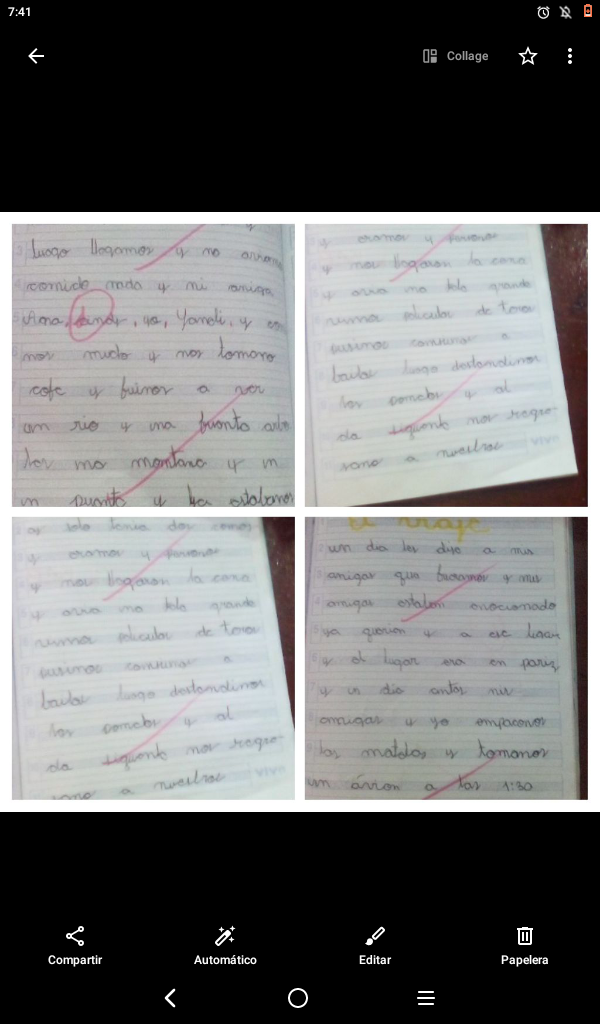 7:41
Collage
luego llegamos y no
comido nada y mi amiga
yo, Yandi, y
nos mudo y nos tomano
cafe y fuimos a ver
un rio y una fuente
una montana y un
un puente y ya estabamos
y eramos y
y nos llegaron la cana
y avia una tele grande
vimos peliculas de teror
a
bailar luego
los y al
dia siguente nos regre-
samo a nuestras
y solo tenia dos camas
y eramos y
y nos llegaron la cana
y avia una tele grande
vimos peliculas de teror
a
bailar luego
los y al
dia siguente nos regre-
samo a nuestras
El viaje
un dia les dije a mis
amigas que fueramos y mis
amigas estalon emocionado
ya querion y a ese lugar
y el lugar era en paris
y un dia antes mis
amigas y yo empacamos
las maletas y tomamos
un avion a las 1:30
Compartir
Automático
Editar
Papelera